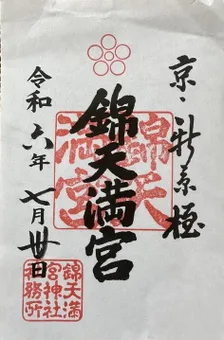 京・新京極
錦天満宮
令和六年七月廿日
錦天
満宮
錦天満
宮神社
社務所